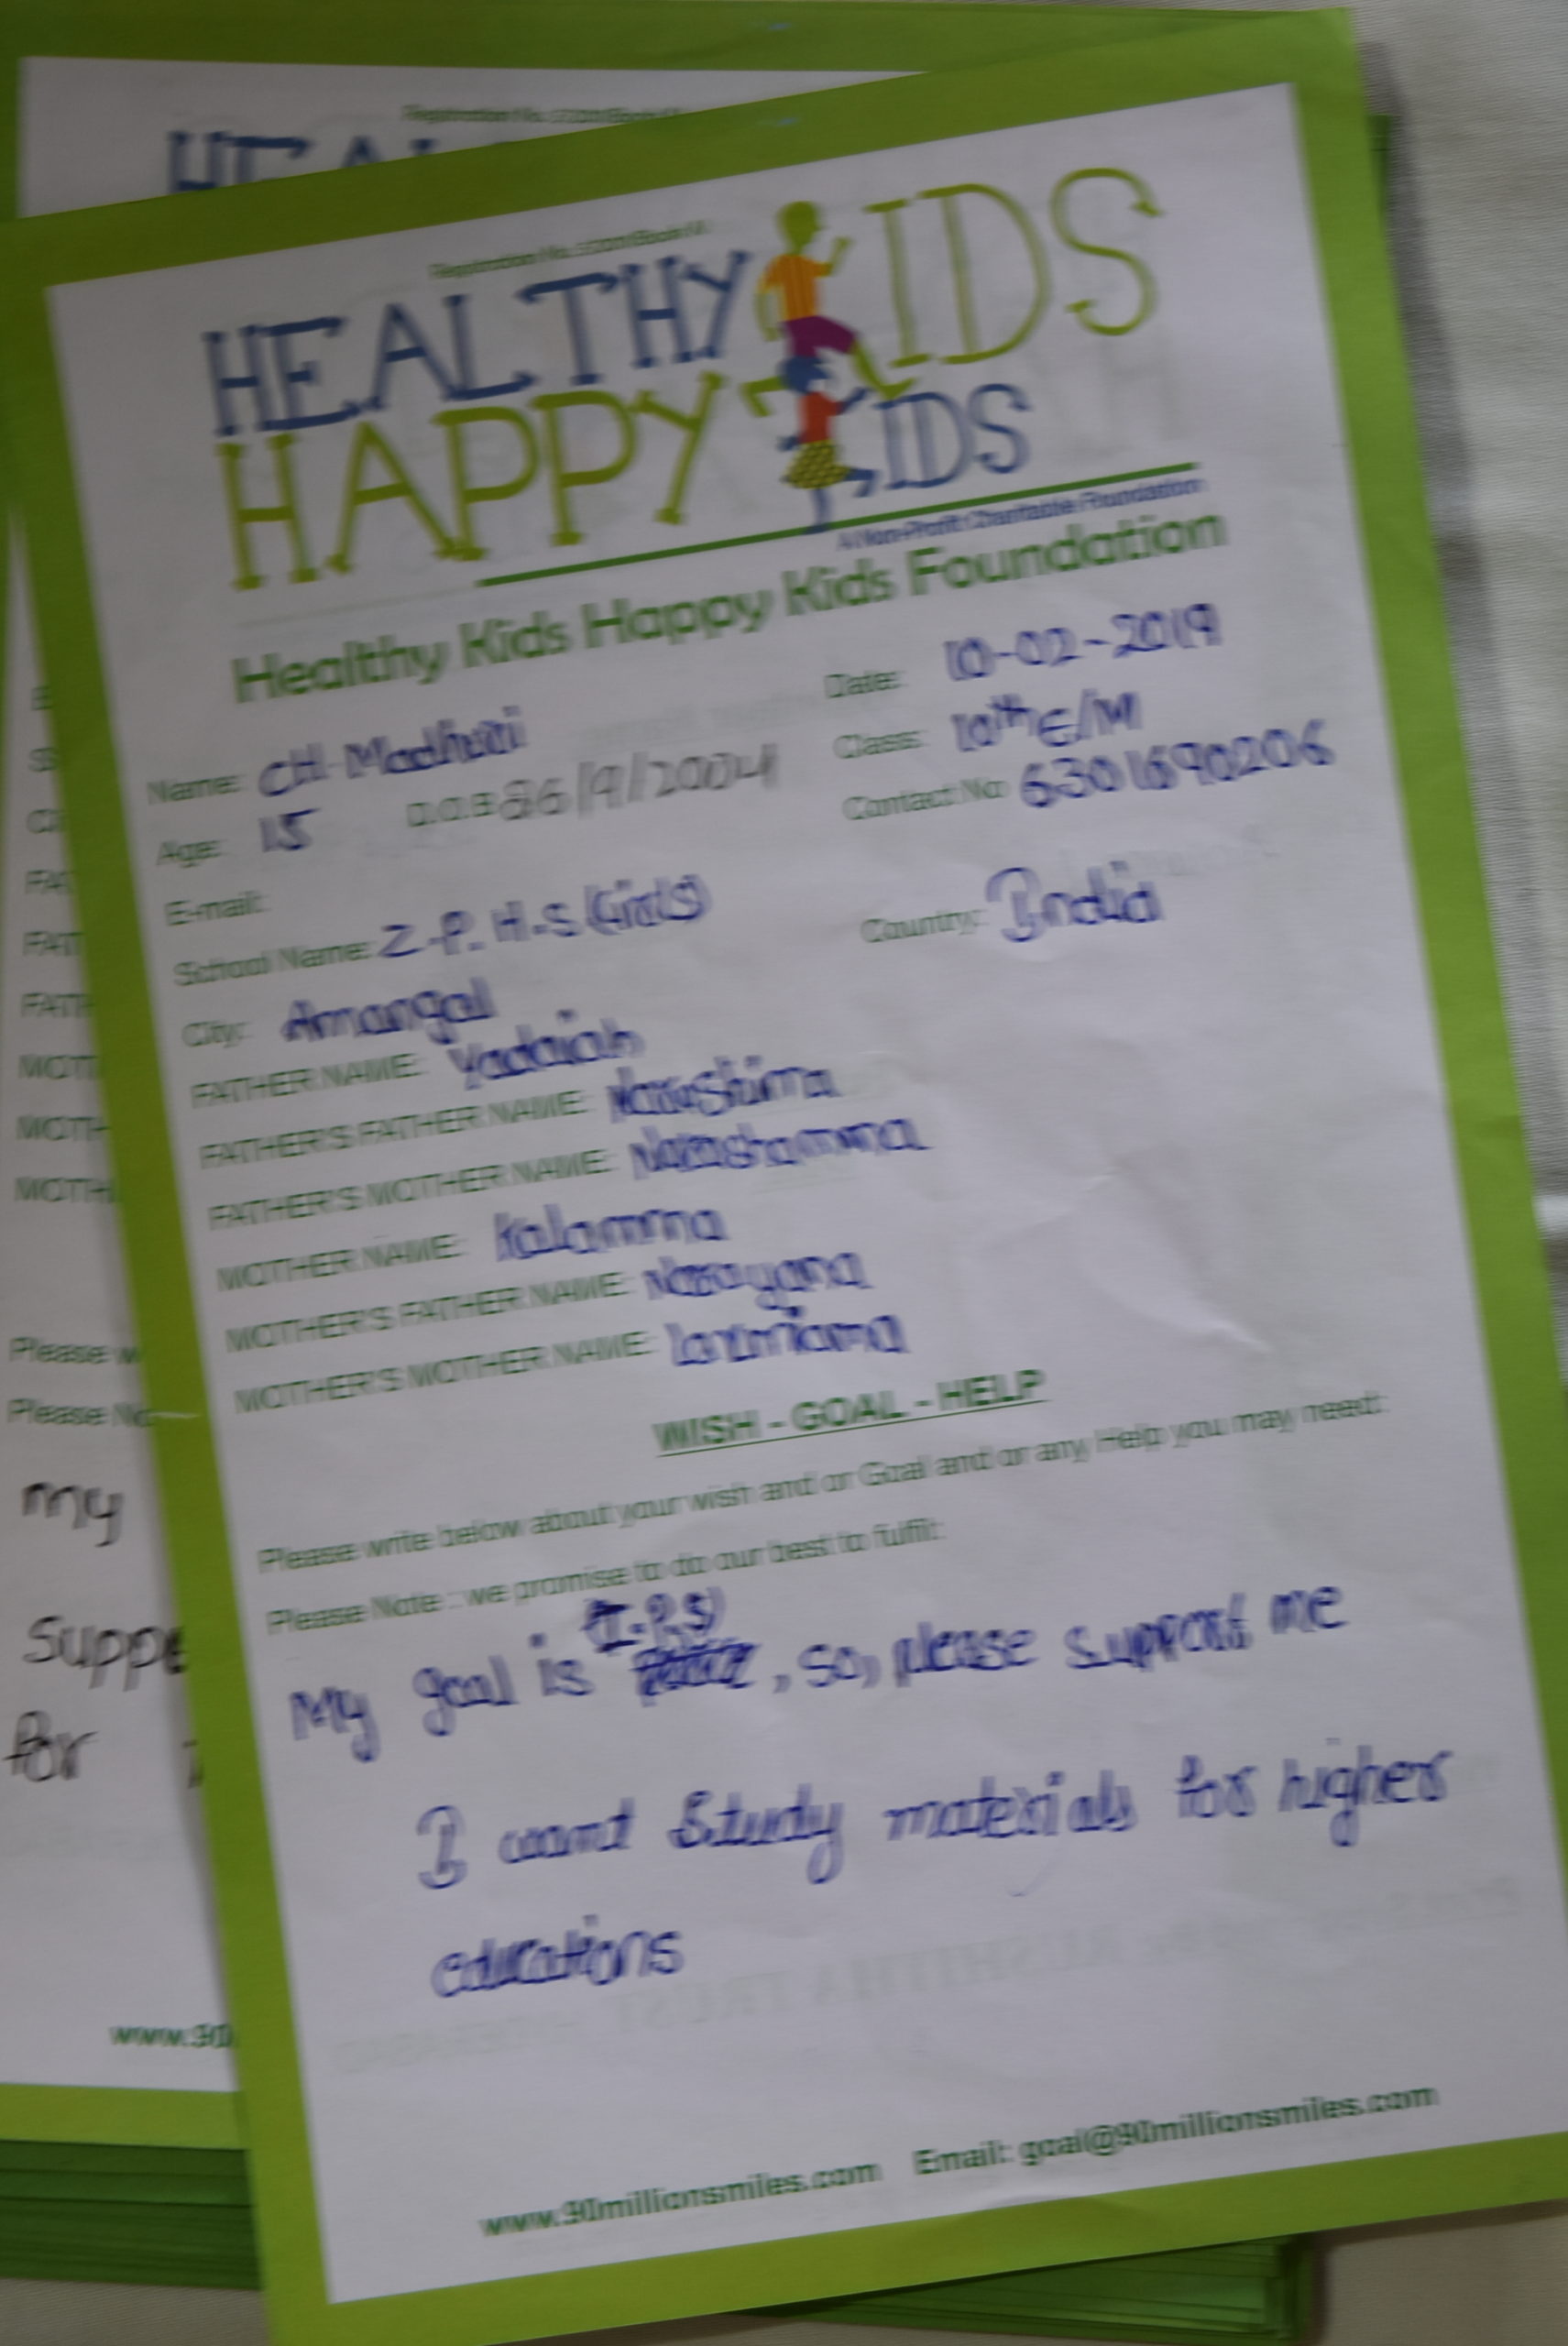 HEALTHY KIDS
HAPPY KIDS
A Non-Profit Charitable Foundation
Healthy Kids Happy Kids Foundation
Date: 10-02-2019
Name: CH. Madhuri
Class: 10th E/M
Age: 15 D.O.B 26/9/2004
Contact No: 6301690206
E-mail:
School Name: Z.P.H.S (Girls)
Country: India
City: Amangal
FATHER NAME: Yadaiah
FATHER'S FATHER NAME: Narashima
FATHER'S MOTHER NAME: Narashamma
MOTHER NAME: Kalamma
MOTHER'S FATHER NAME: Narayana
MOTHER'S MOTHER NAME:
WISH - GOAL - HELP
Please write below about your wish and or Goal and or any Help you may need:
Please Note : we promise to do our best to fulfil:
My goal is (I.P.S) , so, please support me
I want Study materials for higher
educations
www.90millionsmiles.com Email: goal@90millionsmiles.com
Please
Please
my
for
www.90